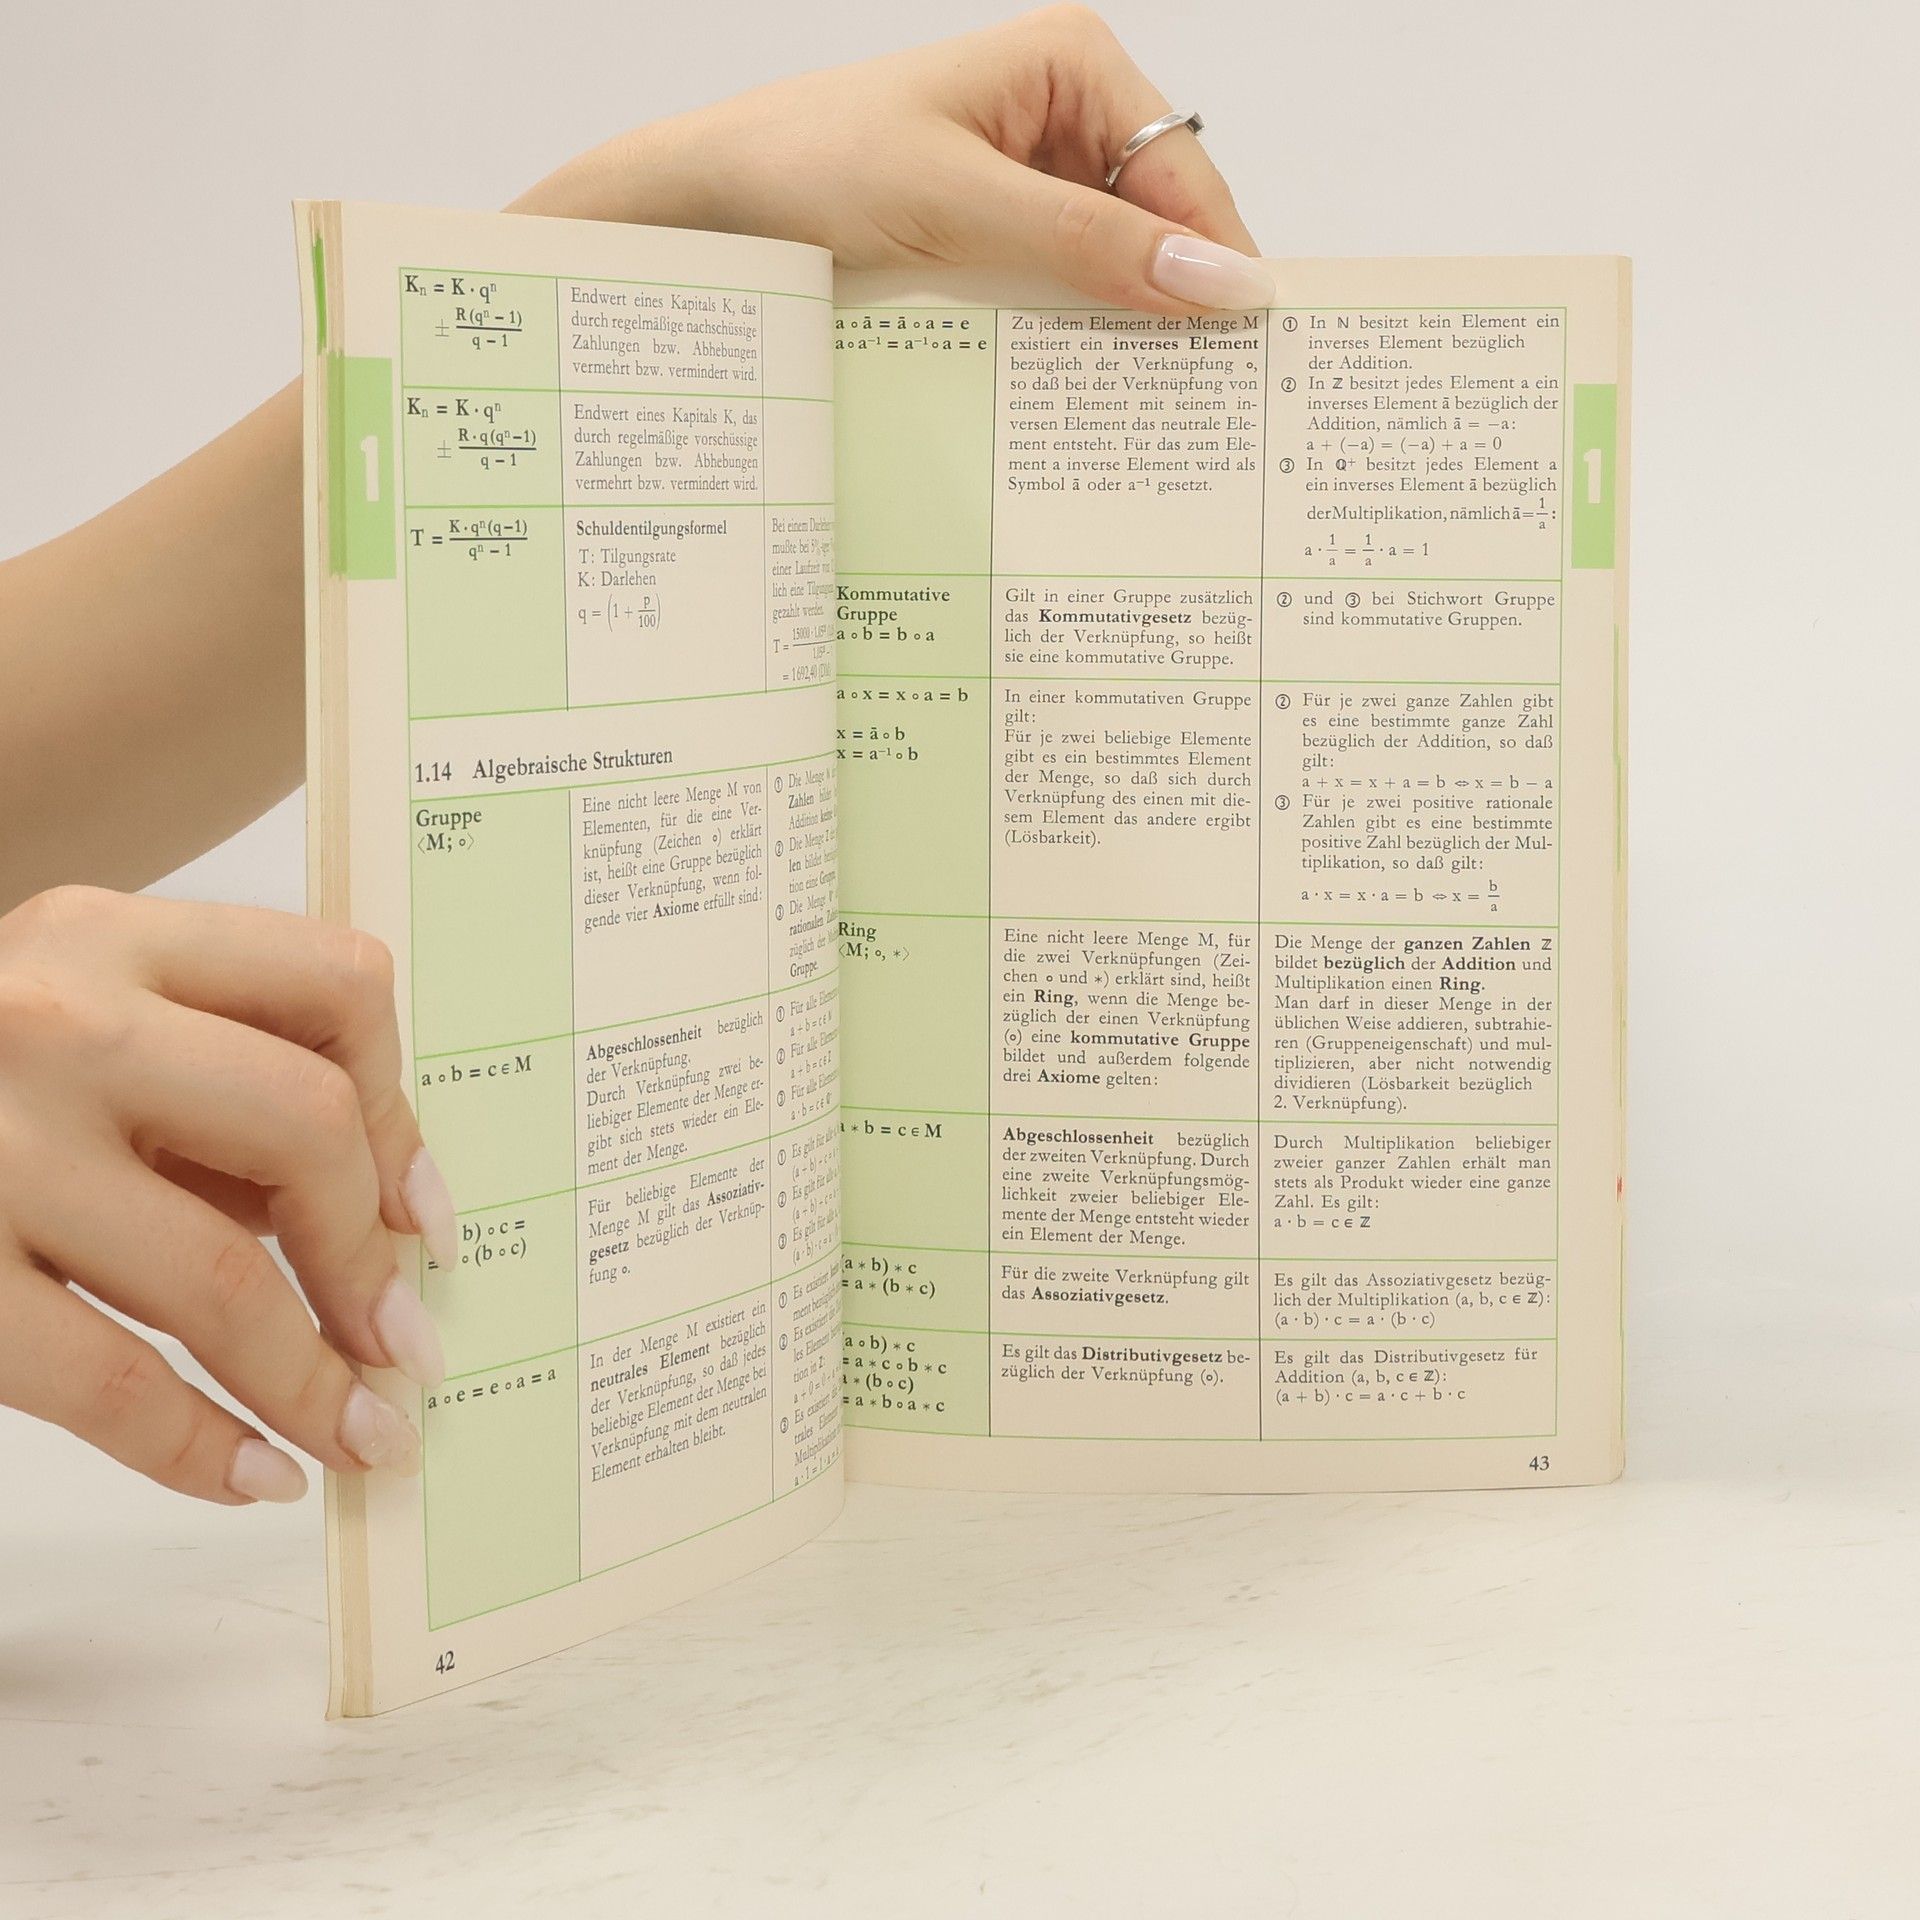 1
Kₙ = K · qⁿ
± R(qⁿ − 1) / q − 1
Endwert eines Kapitals K, das
durch regelmäßige nachschüssige
Zahlungen bzw. Abhebungen
vermehrt bzw. vermindert wird.
Kₙ = K · qⁿ
± R · q(qⁿ−1) / q − 1
Endwert eines Kapitals K, das
durch regelmäßige vorschüssige
Zahlungen bzw. Abhebungen
vermehrt bzw. vermindert wird.
T = K · qⁿ(q−1) / qⁿ − 1
Schuldentilgungsformel
T: Tilgungsrate
K: Darlehen
q = (1 + p/100)
Bei einem
mußte bei
einer Laufzeit von
lich eine
gezahlt werden.
T =
= 1692,40 (DM)
1.14 Algebraische Strukturen
Gruppe
⟨M; ∘⟩
Eine nicht leere Menge M von
Elementen, für die eine Ver-
knüpfung (Zeichen ∘) erklärt
ist, heißt eine Gruppe bezüglich
dieser Verknüpfung, wenn fol-
gende vier Axiome erfüllt sind:
① Die Menge
Zahlen
Addition
② Die Menge
len bildet
tion eine
③ Die Menge
rationalen
züglich der
Gruppe.
a ∘ b = c ∈ M
Abgeschlossenheit bezüglich
der Verknüpfung.
Durch Verknüpfung zwei be-
liebiger Elemente der Menge er-
gibt sich stets wieder ein Ele-
ment der Menge.
① Für alle
a + b = c ∈ N
② Für alle
a + b = c ∈ Z
③ Für alle
a · b = c ∈
b) ∘ c =
= ∘ (b ∘ c)
Für beliebige Elemente der
Menge M gilt das Assoziativ-
gesetz bezüglich der Verknüp-
fung ∘.
① Es gilt für
(a + b) + c =
② Es gilt für
(a + b) + c =
③ Es gilt für
(a · b) · c =
a ∘ e = e ∘ a = a
In der Menge M existiert ein
neutrales Element bezüglich
der Verknüpfung, so daß jedes
beliebige Element der Menge bei
Verknüpfung mit dem neutralen
Element erhalten bleibt.
① Es existiert
② Es existiert
les Element
tion in Z:
③ Es existiert
trales
42
a ∘ ā = ā ∘ a = e
a ∘ a⁻¹ = a⁻¹ ∘ a = e
Zu jedem Element der Menge M
existiert ein inverses Element
bezüglich der Verknüpfung ∘,
so daß bei der Verknüpfung von
einem Element mit seinem in-
versen Element das neutrale Ele-
ment entsteht. Für das zum Ele-
ment a inverse Element wird als
Symbol ā oder a⁻¹ gesetzt.
① In ℕ besitzt kein Element ein
inverses Element bezüglich
der Addition.
② In ℤ besitzt jedes Element a ein
inverses Element ā bezüglich der
Addition, nämlich ā = −a:
a + (−a) = (−a) + a = 0
③ In ℚ⁺ besitzt jedes Element a
ein inverses Element ā bezüglich
der Multiplikation, nämlich ā = 1/a :
a · 1/a = 1/a · a = 1
1
Kommutative
Gruppe
a ∘ b = b ∘ a
Gilt in einer Gruppe zusätzlich
das Kommutativgesetz bezüg-
lich der Verknüpfung, so heißt
sie eine kommutative Gruppe.
② und ③ bei Stichwort Gruppe
sind kommutative Gruppen.
a ∘ x = x ∘ a = b
x = ā ∘ b
x = a⁻¹ ∘ b
In einer kommutativen Gruppe
gilt:
Für je zwei beliebige Elemente
gibt es ein bestimmtes Element
der Menge, so daß sich durch
Verknüpfung des einen mit die-
sem Element das andere ergibt
(Lösbarkeit).
② Für je zwei ganze Zahlen gibt
es eine bestimmte ganze Zahl
bezüglich der Addition, so daß
gilt:
a + x = x + a = b ⇔ x = b − a
③ Für je zwei positive rationale
Zahlen gibt es eine bestimmte
positive Zahl bezüglich der Mul-
tiplikation, so daß gilt:
a · x = x · a = b ⇔ x = b/a
Ring
⟨M; ∘, ∗⟩
Eine nicht leere Menge M, für
die zwei Verknüpfungen (Zei-
chen ∘ und ∗) erklärt sind, heißt
ein Ring, wenn die Menge be-
züglich der einen Verknüpfung
(∘) eine kommutative Gruppe
bildet und außerdem folgende
drei Axiome gelten:
Die Menge der ganzen Zahlen ℤ
bildet bezüglich der Addition und
Multiplikation einen Ring.
Man darf in dieser Menge in der
üblichen Weise addieren, subtrahie-
ren (Gruppeneigenschaft) und mul-
tiplizieren, aber nicht notwendig
dividieren (Lösbarkeit bezüglich
2. Verknüpfung).
a ∗ b = c ∈ M
Abgeschlossenheit bezüglich
der zweiten Verknüpfung. Durch
eine zweite Verknüpfungsmög-
lichkeit zweier beliebiger Ele-
mente der Menge entsteht wieder
ein Element der Menge.
Durch Multiplikation beliebiger
zweier ganzer Zahlen erhält man
stets als Produkt wieder eine ganze
Zahl. Es gilt:
a · b = c ∈ ℤ
(a ∗ b) ∗ c
= a ∗ (b ∗ c)
Für die zweite Verknüpfung gilt
das Assoziativgesetz.
Es gilt das Assoziativgesetz bezüg-
lich der Multiplikation (a, b, c ∈ ℤ):
(a · b) · c = a · (b · c)
(a ∘ b) ∗ c
= a ∗ c ∘ b ∗ c
a ∗ (b ∘ c)
= a ∗ b ∘ a ∗ c
Es gilt das Distributivgesetz be-
züglich der Verknüpfung (∘).
Es gilt das Distributivgesetz für
Addition (a, b, c ∈ ℤ):
(a + b) · c = a · c + b · c
43